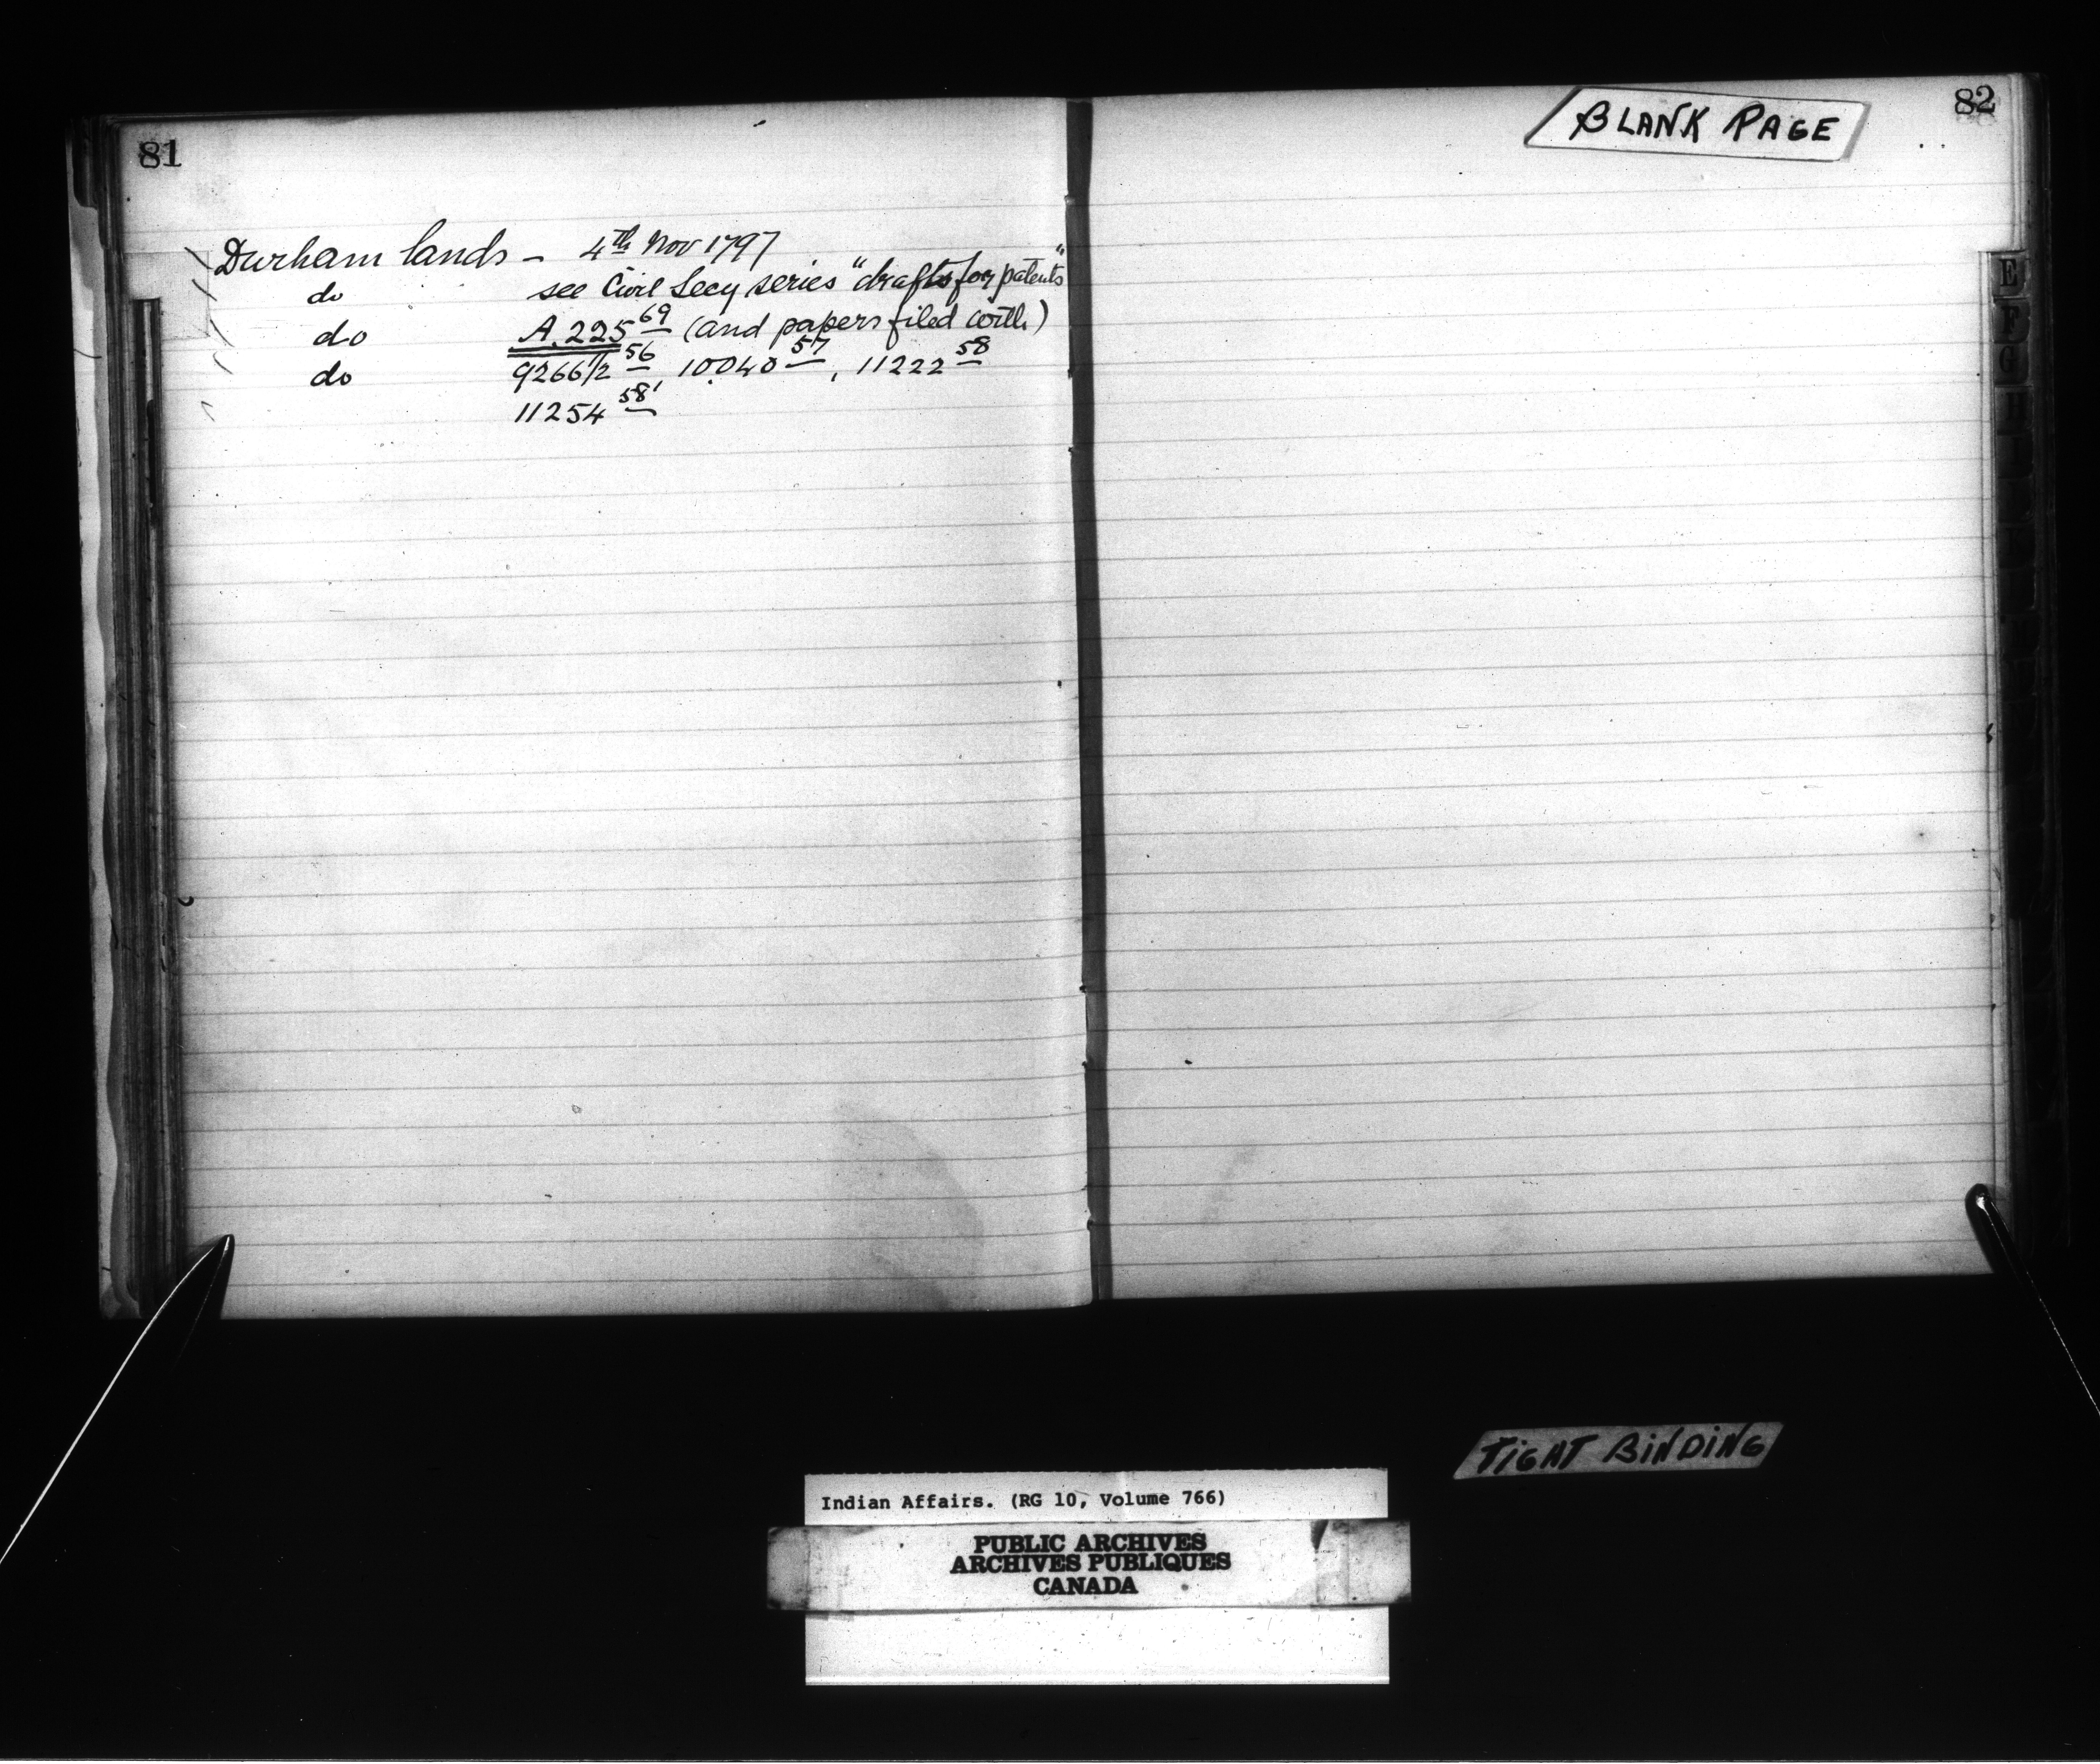 81
Durham lands – 4th Nov 1797
do see Civil Secy series "drafts for patents"
do A.225 69 (and papers filed with)
do 9266 1/2 56, 10040 57, 11222 58
11254 58
82
BLANK PAGE
E
F
G
H
TIGHT BINDING
Indian Affairs. (RG 10, Volume 766)
PUBLIC ARCHIVES
ARCHIVES PUBLIQUES
CANADA